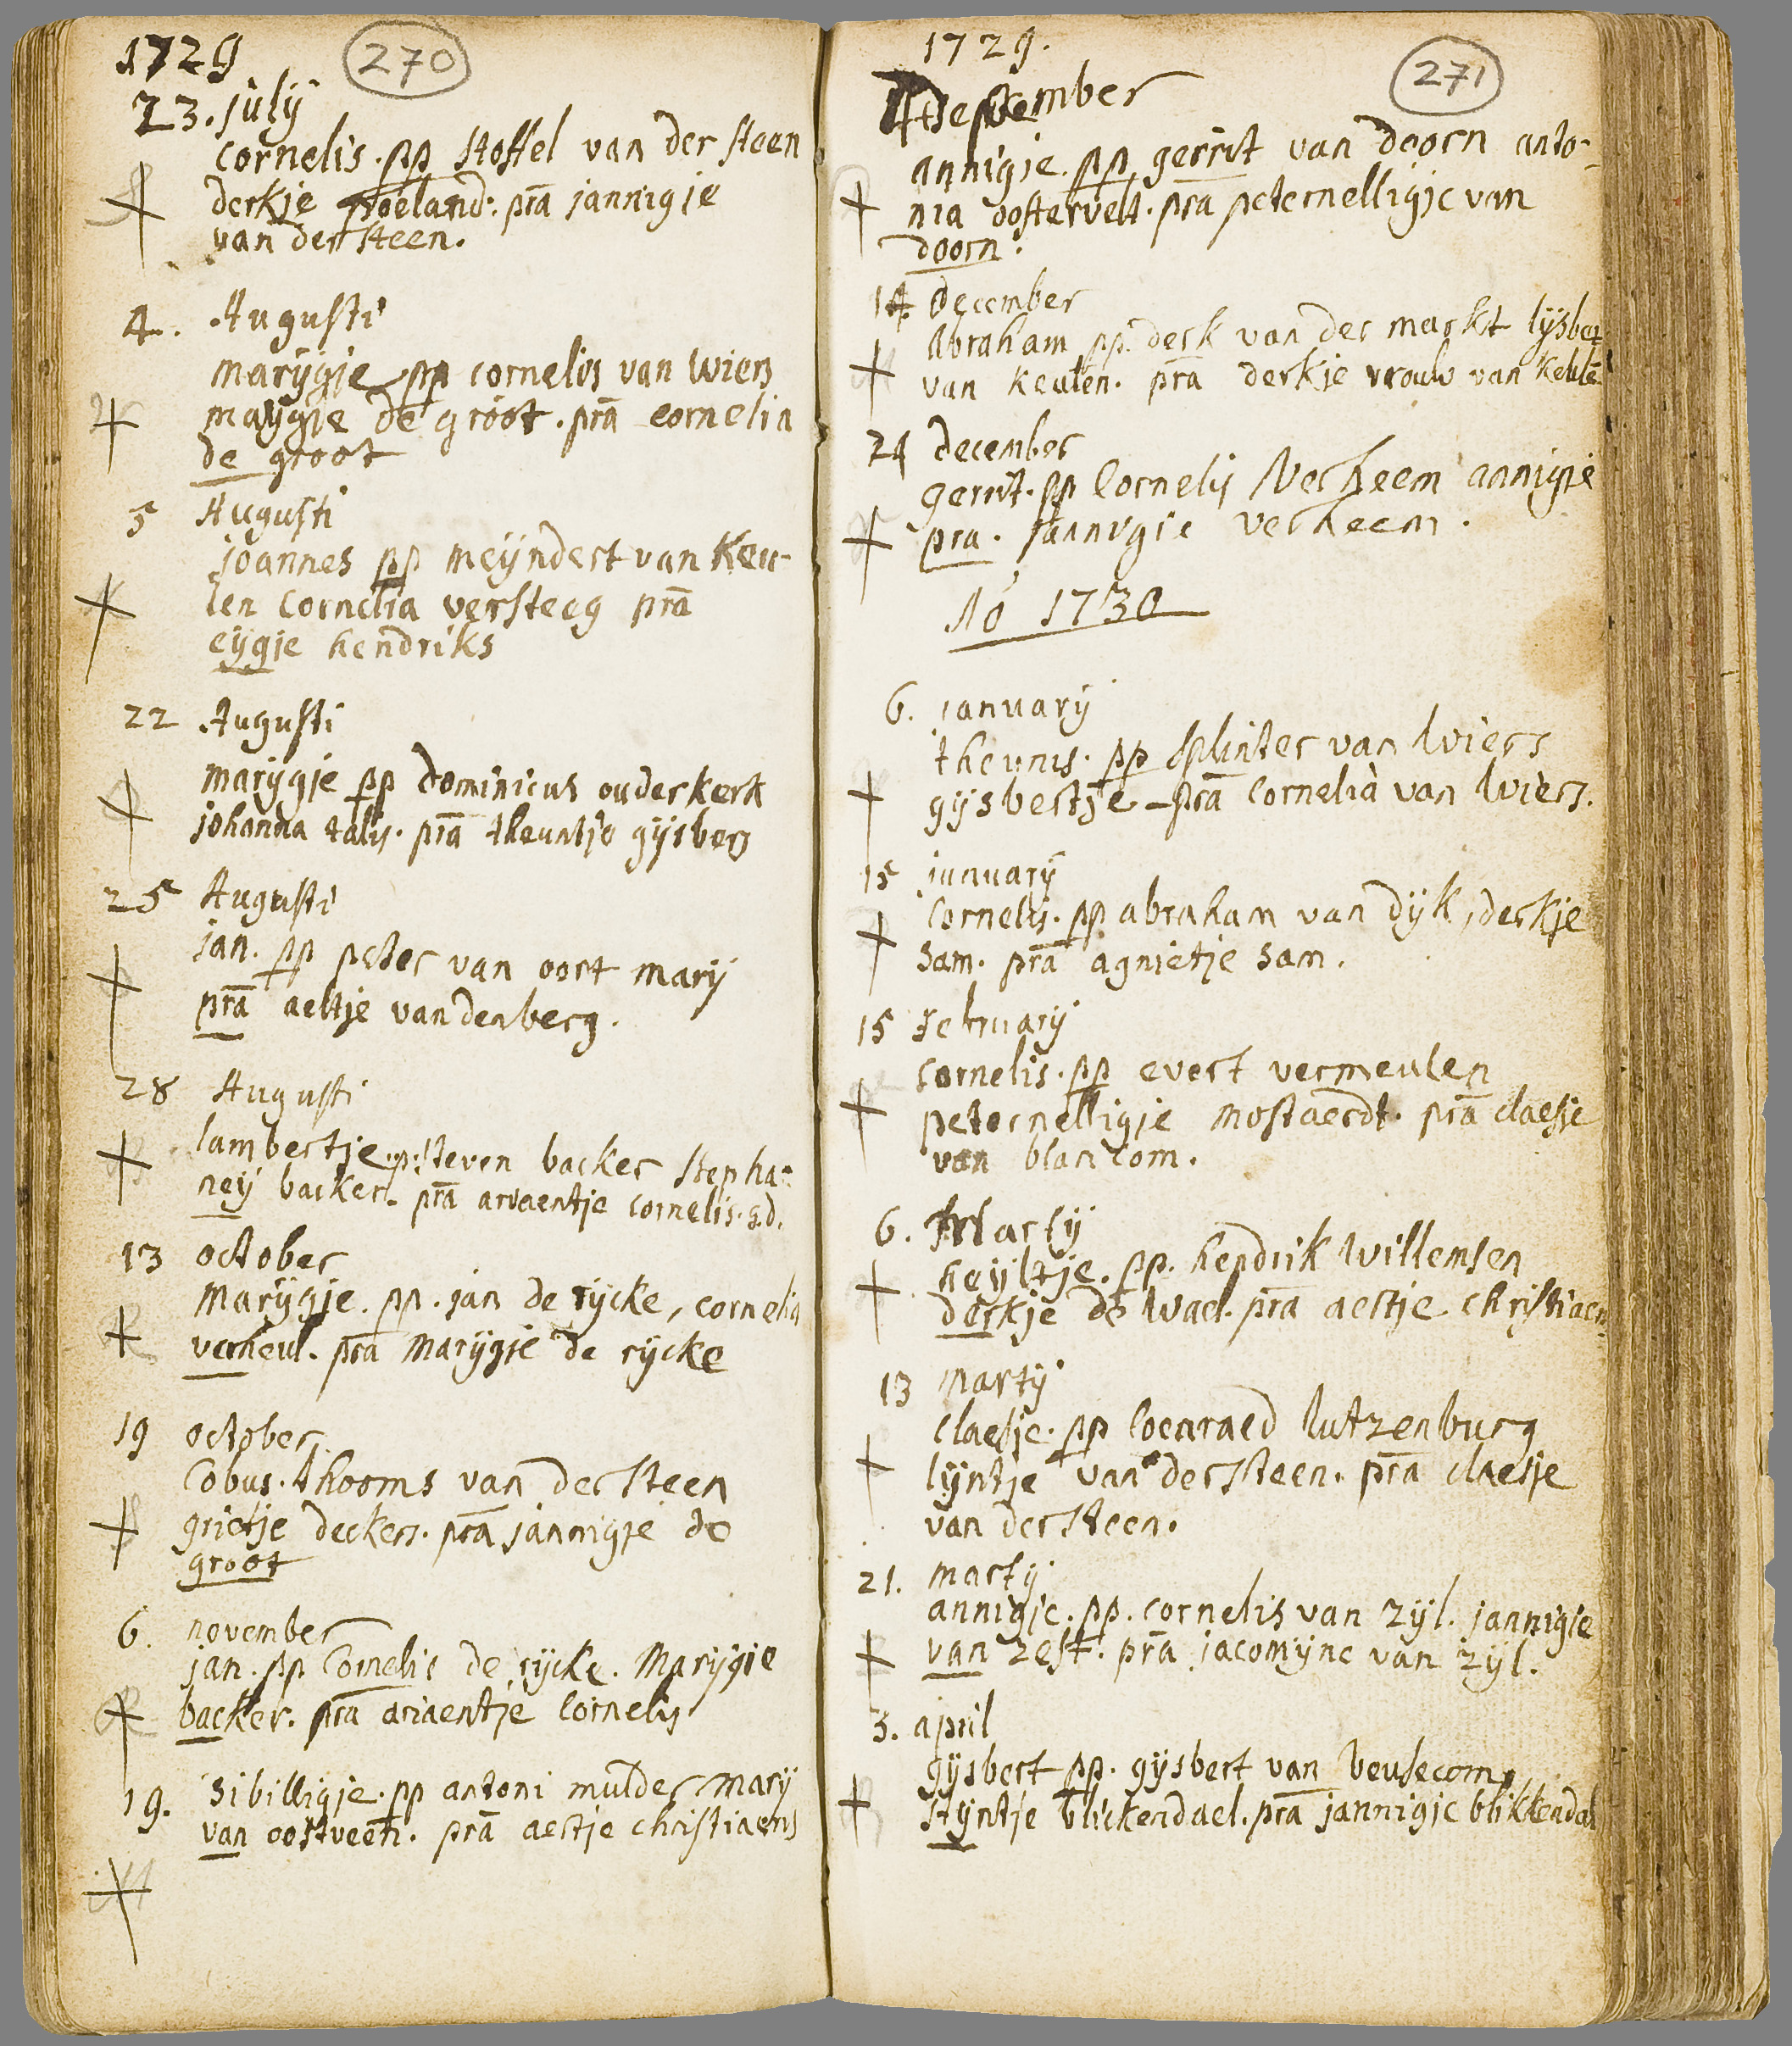 1729
270
23. july
cornelis. pp stoffel van der steen
derkje roeland. prā jannigje
van der steen.
4. Augusti
marijgje pp cornelis van wiers
maygje de groot. prā cornelia
de groot
5 Augusti
joannes pp meijndert van keu-
len cornelia versteeg prā
eijgje hendriks
22 Augusti
marijgje pp dominicus ouderkerk
johanna talis. prā theuntje gijsbers
25 Augusti
jan. pp peter van oort marij
prā aeltje van den berg.
28 Augusti
lambertje. pp. steven backer stepha-
neij backer. prā arvaentje cornelis. g.d.
13 october
Marijgje. pp. jan de rijcke, cornelia
verheul. prā Marijgje de rijcke
19 october.
Cobus. thooms van der steen
grietje deckers. prā jannigje de
groot
6. november
jan. pp Cornelis de rijcke. Marijgje
backer. prā ariaentje Cornelis
19. Sibilligje. pp antoni mulder marij
van oostveen. prā aertje christiaens
1729.
271
december
annigje. pp gerrit van doorn anto-
nia oostervelt. prā peternelligje van
doorn.
14 december
Abraham pp. derk van der markt lijsbet
van keulen. prā derkje vrouw van keulē
24 december
gerrit. pp Cornelis Verheem annigje
pra. jannigje verheem.
Aō 1730
6. january
theunis. pp splinter van Wiers
gijsbertje - prā Cornelia van Wiers.
15 january
Cornelis. pp abraham van dijk, derkje
sam. prā agnietje sam.
15 february
cornelis. pp evert vermeulen
peternelligje mostaerdt. prā claesje
van blancom.
6. Martij
heijltje. pp. hendrik Willemsen
derkje de Wael. prā aertje christiaens
13 martij
claesje. pp Coenraed lutzenburg
lijntje van der steen. prā claesje
van der steen.
21. martij
annigje. pp. cornelis van zijl. jannigje
van zest. prā jacomijne van zijl.
3. april
gijsbert pp. gijsbert van beusecom,
stijntje blickendael. prā jannigje blikkendal